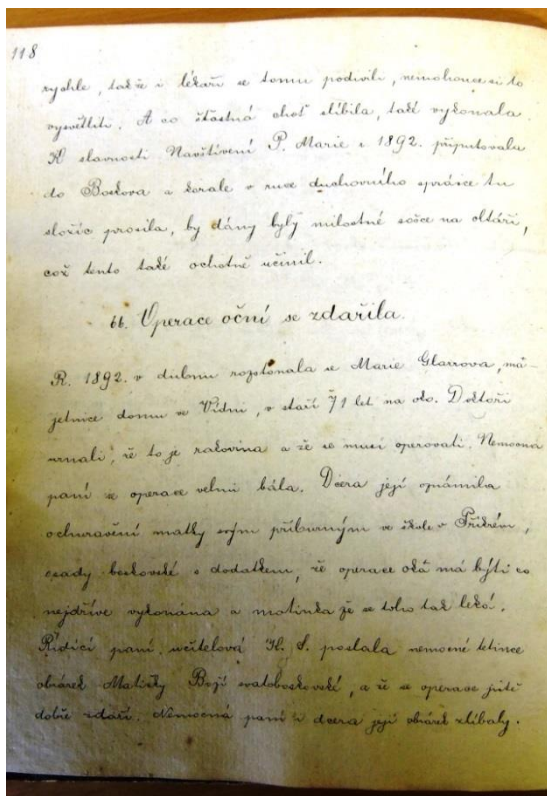 118
rychle, takže i lékaři se tomu podivili, nemohouce si to
vysvětliti. A co šťastná choť slíbila, také vykonala.
K slavnosti Navštívení P. Marie r. 1892. připutovala
do Boskova a korale v ruce duchovního správce tu
složíc prosila, by dány byly milostné sošce na oltáři,
což tento také ochotně učinil.
66. Operace oční se zdařila.
R. 1892. v dubnu rozstonala se Marie Glassova, má-
jetnice domu ve Vídni, v stáří 71 let na oko. Doktoři
uznali, že to je rakovina a že se musí operovati. Nemocná
paní se operace velmi bála. Dcera její oznámila
ochuravění matky svým příbuzným ve škole v Příkrém,
osady boskovské s dodatkem, že operace oka má býti co
nejdříve vykonana a matinka že se toho tak leká.
Řídící paní učitelová K. S. poslala nemocné tetince
obrázek Matičky Boží svatoboskovské, a že se operace jistě
dobře zdaří. Nemocná paní i dcera její obrázek zlíbaly.